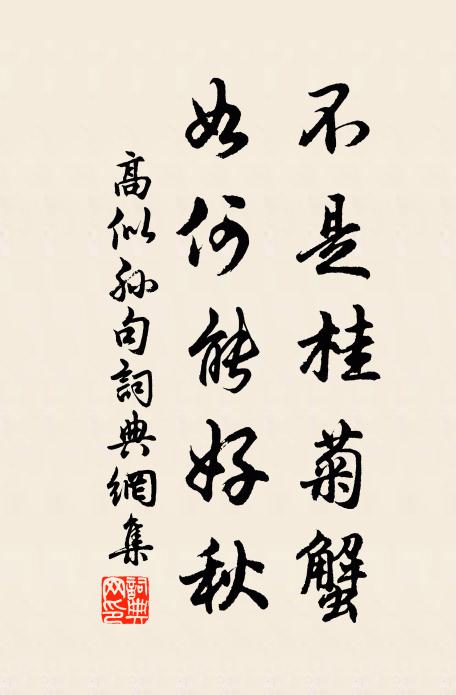 不是桂菊蟹
如何能好秋
高似孙句詞典網集
詞典网印